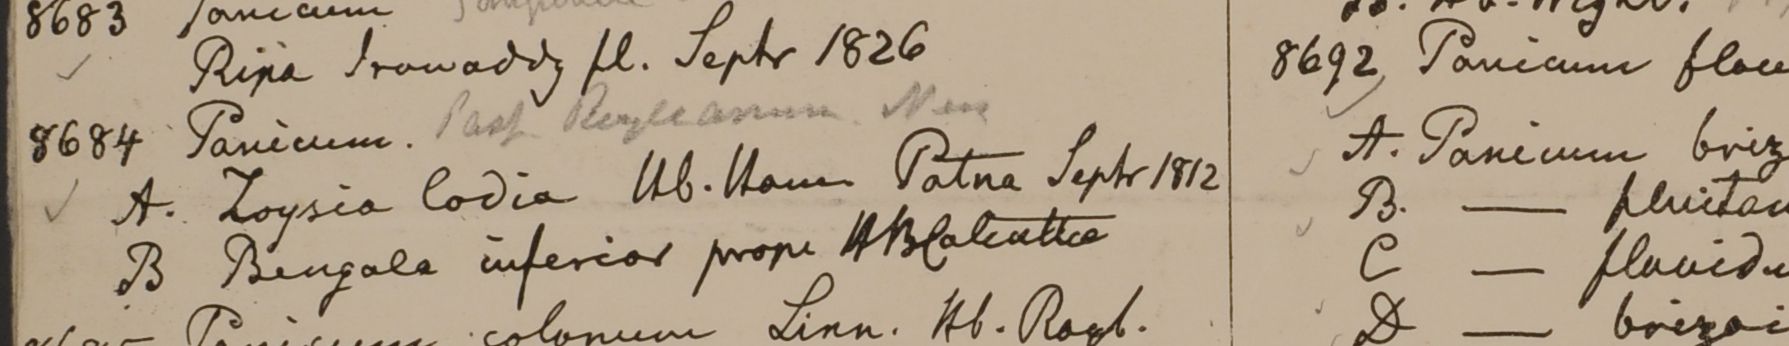 8683 Panicum
Ripa Irawaddy fl. Septr 1826
8684 Panicum. Pasp Royleanum Nees
A. Zoysia Codia Hb. Ham Patna Septr 1812
B Bengala inferior prope HBCalcutta
Panicum colonum Linn. Hb. Roxb.
Hb. Wight.
8692 Panicum flav
A. Panicum briz
B. — fluitan
C — flavidu
D — brizoi